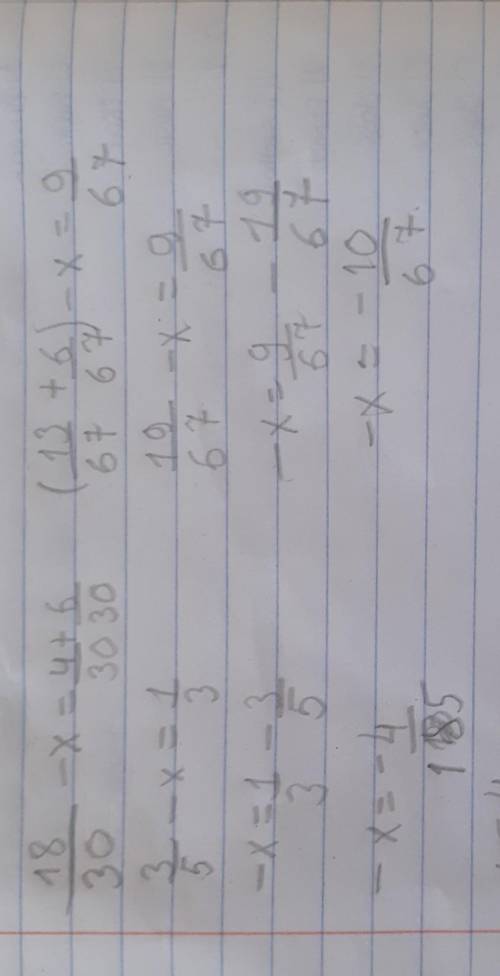 18/30 - x = 4/30 + 6/30
3/5 - x = 1/3
-x = 1/3 - 3/5
-x = -4/15
(13/67 + 6/67) - x = 9/67
19/67 - x = 9/67
-x = 9/67 - 19/67
-x = -10/67